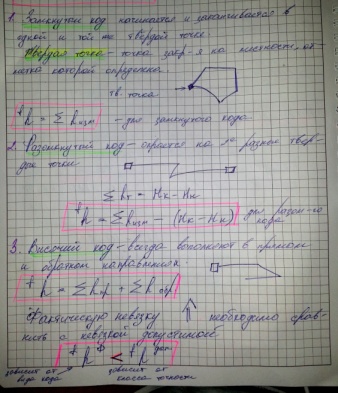 1. Замкнутый ход начинается и заканчивается в
одной и той же твердой точке
Твёрдая точка - точка закр-я на местности, от
метка которой определена.
тв. точка
fh = Σ hизм - для замкнутого хода
2. Разомкнутый ход - опирается на 2е разные твер-
дые точки
Σ hт = Hк - Hн
fh = Σ hизм - (Hк - Hн) для разом-го
хода
3. Висячий ход - всегда выполняют в прямом
и обратном направлениях
fh = Σ hпр + Σ hобр
Фактическую невязку необходимо срав-
нить с невязкой допустимой
fhф < fhдоп
зависит от
вида хода
зависит от
класса точности